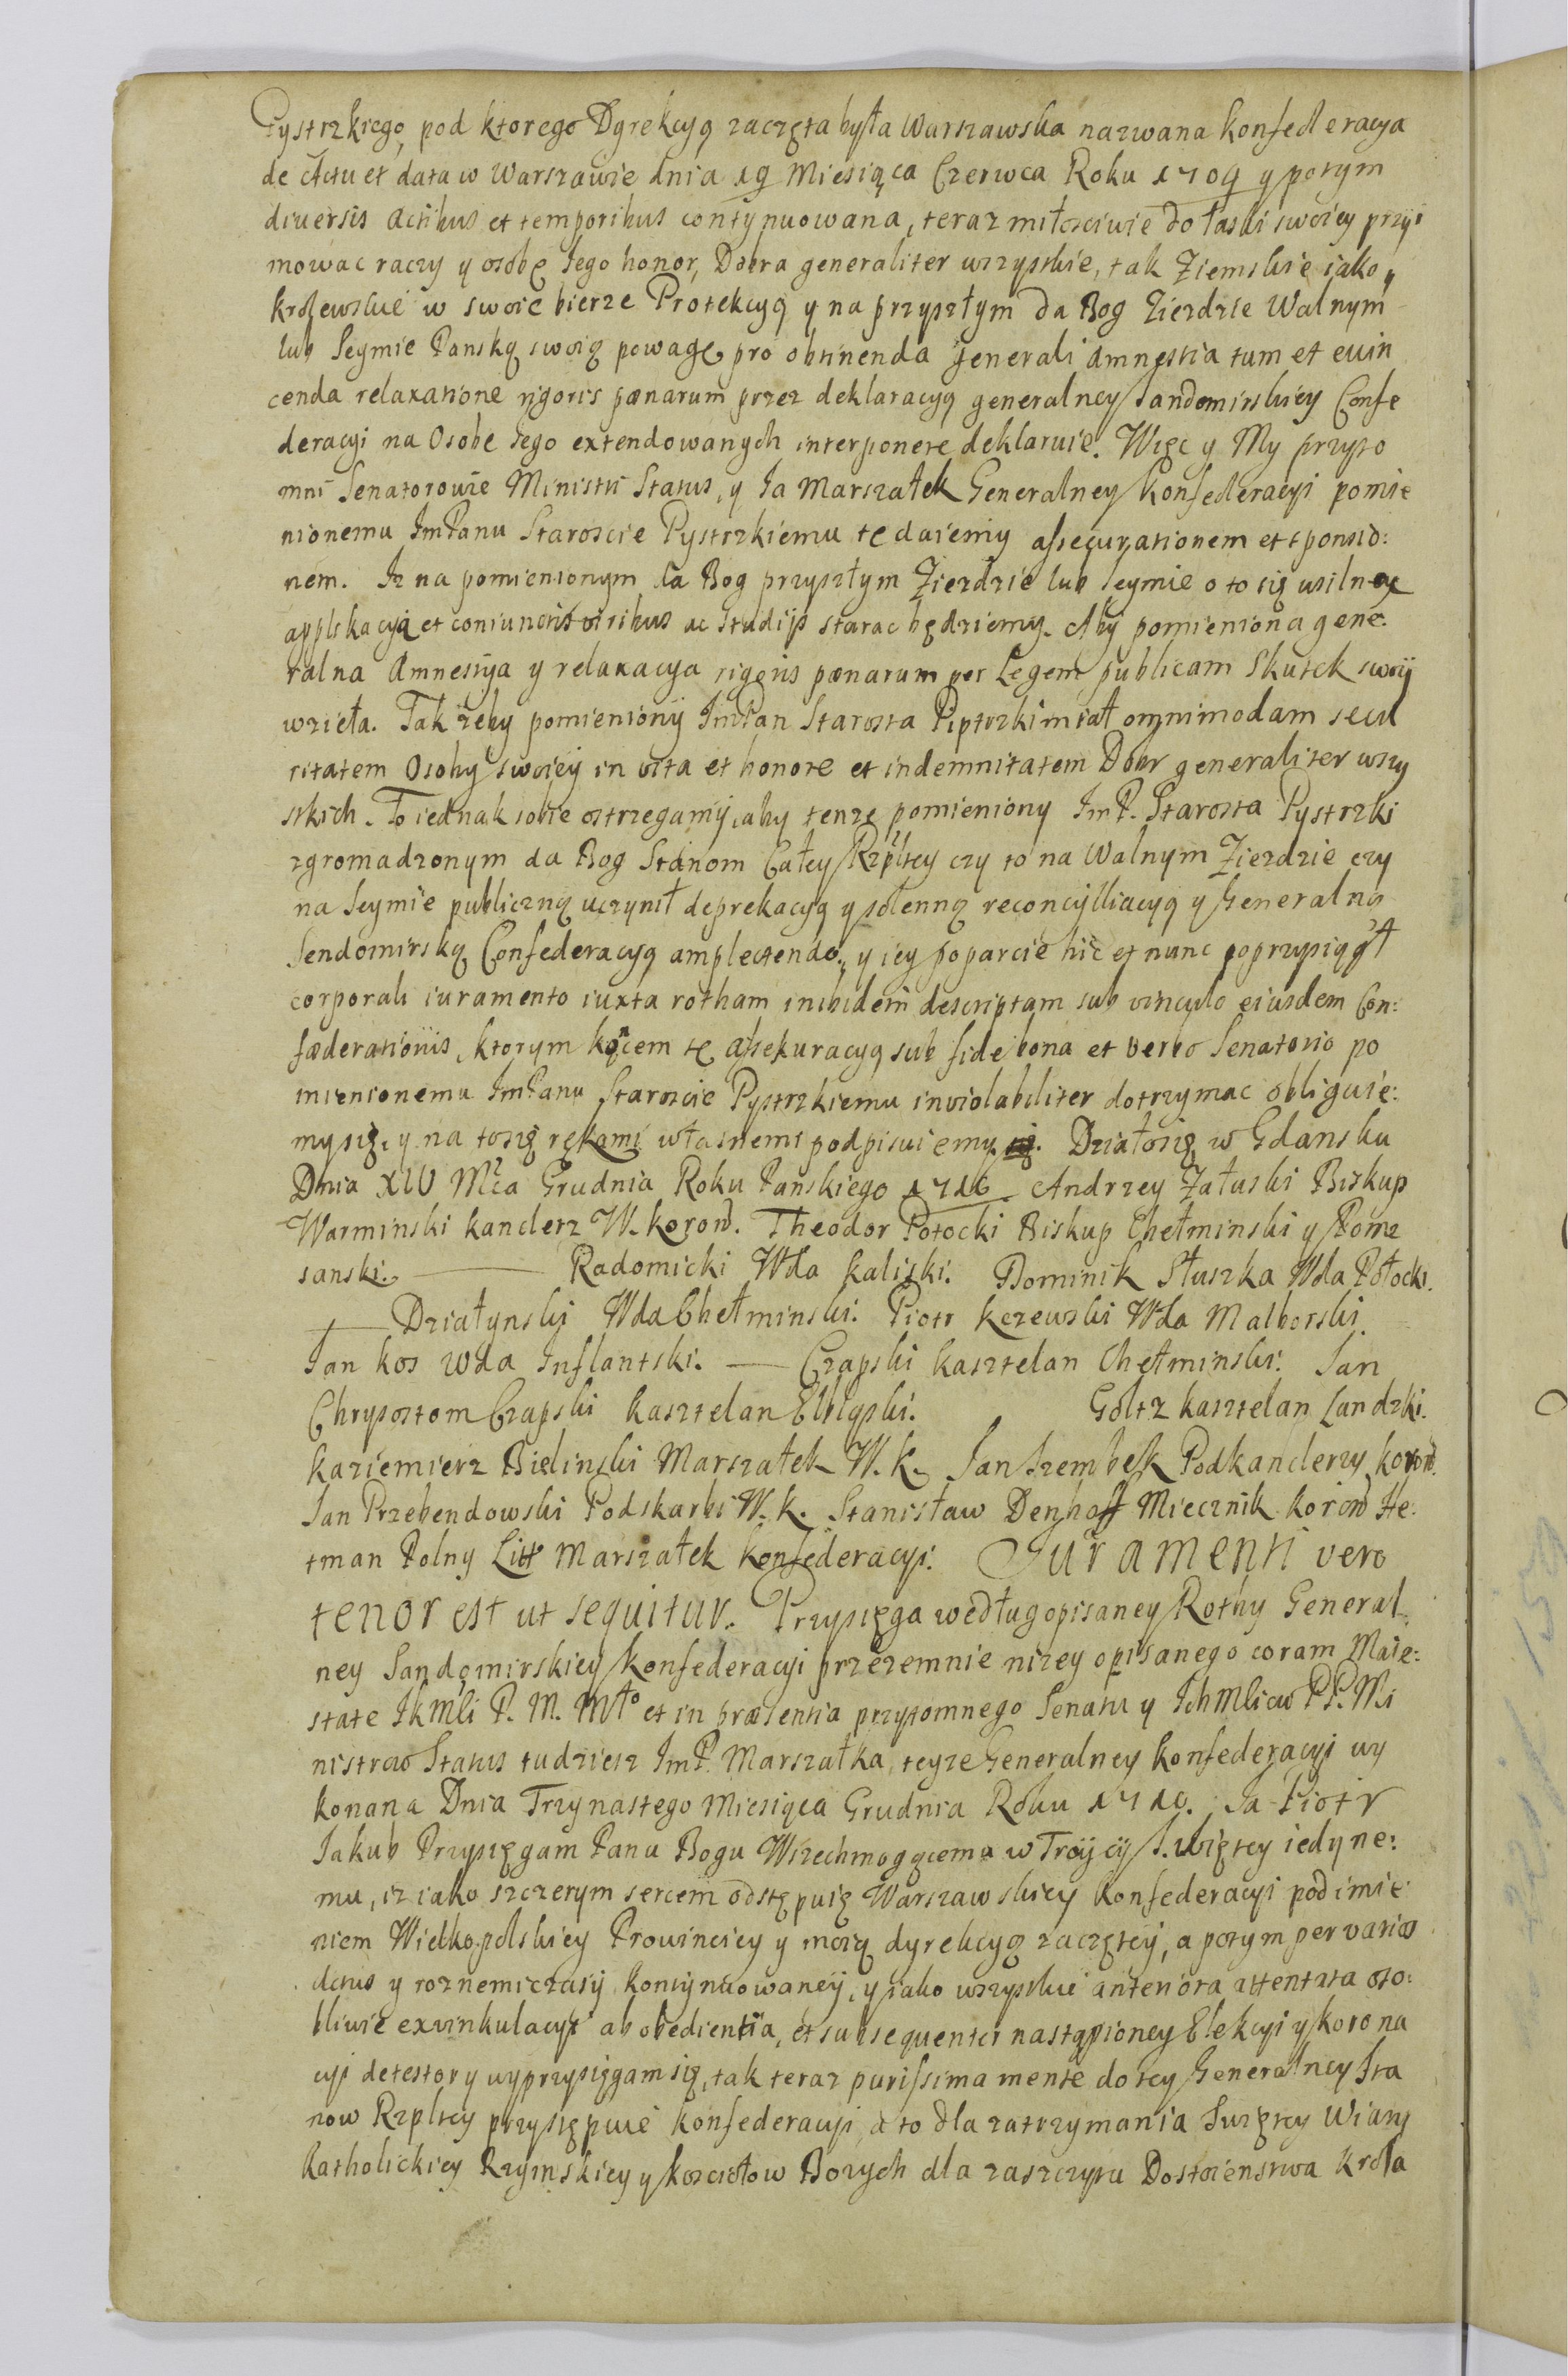 Pystrzkiego, pod ktorego Dyrekcyą zaczęta była Warszawska nazwana konfederacya
de Actu et data w Warszawie dnia 19 Miesiąca Czerwca Roku 1709 y potym
diversis actibus et temporibus contynuowana, teraz miłosciwie do łaski swoiey przyi
mowac raczy y osobę Jego honor, Dobra generaliter wszystkie, tak Ziemskie iako y
krolewskie w swoie bierze Protekcyą y na przyszłym da Bog Zieździe Walnym
lub Seymie Panską swoią powagę pro obtinenda generali amnestia tum et evin
cenda relaxatione rigoris pœnarum przez deklaracyą generalney Sandomirskiey Confe
deracyi na Osobe Jego extendowanych interponere deklaruie. Więc y My przyto
mni Senatorowie Ministri Status, y Ja Marszałek Generalney Konfederacyi pomie
nionemu ImPanu Staroscie Pystrzkiemu tę daiemy assecurationem et sponsio:
nem. Iz na pomienionym da Bog przyszłym Zieździe lub Seymie o to się usilną
applikacyą et coniunctis viribus ac studijs starac będziemy. Aby pomieniona gene:
ralna Amnestya y relaxacya rigoris pœnarum per Legem publicam Skutek swoij
wzieła. Tak zeby pomienionij ImPan Starosta Piptrzki miał omnimodam secu
ritatem Osoby swoiey in vita et honore et indemnitatem Dobr generaliter wszy
stkich. To iednak sobie ostrzegamy, aby tenze pomieniony ImP. Starosta Pystrzki
zgromadzonym da Bog Stanom Całey Rzpltey czy to na Walnym Zieździe czy
na Seymie publiczną uczynił deprekacyą y solenną reconcylliacyą y Generalną
Sendomirską Confederacyą amplectendo, y iey poparcie hic et nunc poprzysiągł
corporali iuramento iuxta rotham inibidem descriptam sub vinculo eiusdem Con:
fœderationis, ktorym koncem tę assekuracyą sub fide bona et verbo Senatorio po
mienionemu ImPanu Staroscie Pystrzkiemu inviolabiliter dotrzymac obliguie:
my się, y na to się rękami własnemi podpisuiemy. Działo się w Gdansku
Dnia XIV Mca Grudnia Roku Panskiego 1710. Andrzey Załuski Biskup
Warminski kanclerz W. koron. Theodor Potocki Biskup Chełminski y Pome
sanski. —— Radomicki Wda kaliski. Dominik Słuszka Wda Połocki.
—— Działynski Wda Chełminski. Piotr kczewski Wda Malborski.
Jan kos wda Inflantski. —— Czapski kasztelan Chełminski. Jan
Chryzostom Czapski kasztelan Elbigski. Goltz kasztelan Landzki.
kaziemierz Bielinski Marszałek W. k. Jan Szembek Podkanclerzy koron.
Jan Przebendowski Podskarbi W. k. Stanisław Denhoff Miecznik koron He:
tman Polny Litt Marszałek konfederacyi. Juramenti vero
tenor est ut sequitur. Przysięga według opisaney Rothy General
ney Sandomirskiey konfederacyi przezemnie nizey opisanego coram Maie:
state JkMsci P. M. Mto et in præsentia przytomnego Senatu y IchMsciow PP. Mi
nistrow Status tudziesz ImP. Marszałka teyze Generalney konfederacyi wy
konana Dnia Trzynastego Miesiąca Grudnia Roku 1710. Ja Piotr
Jakub Przysięgam Panu Bogu Wszechmogącemu w Troycy S. więtey iedyne:
mu, iz iako szczerym sercem odstępuię Warszawskiey konfederacyi pod imie
niem Wielkopolskiey Prowinciey y moią dyrekcyą zaczętey, a potym per varios
actus y roznemi czasy kontynuowaney, y iako wszystkie anteriora attentata oso:
bliwie exvinkulacyi ab obedientia, et subsequenter nastąpioney Elekcyi y korona
cyi detestor y wyprzysięgam się, tak teraz purissima mente do tey Generalney Sta
now Rzpltey przystępuię konfederacyi, a to dla zatrzymania Swiętey Wiary
katholickiey Rzymskiey y kosciołow Bozych dla zaszczytu Dostoienstwa krola